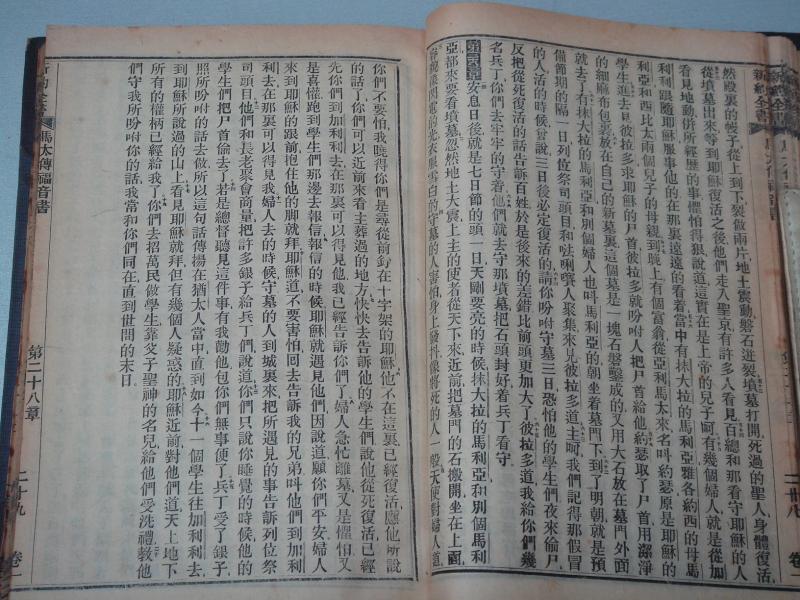 新約全書
馬太傳福音書
二十八
卷一
然殿裏的帳子從上到下裂做兩片地土震動磐石迸裂墳墓打開死過的聖人身體復活
從墳墓出來等到耶穌復活之後他們走入聖京有許多人看見百總和那看守耶穌的人
看見地動併所經歷的事懼怕得狠說道這實在是上帝的兒子阿有幾個婦人就是從加
利利跟隨耶穌服事他的在那裏遠遠的看着當中有抹大拉的馬利亞雅各約西的母馬
利亞和西比太兩個兒子的母親到晚上有個富翁從亞利馬太來名叫約瑟原是耶穌的
學生進去見彼拉多求耶穌的尸首彼拉多就吩咐人把尸首給他約瑟取了尸首用潔淨
的細麻布包裹放在自己的新墓裏這個墓是一塊石磐鑿成的又用大石放在墓門外面
就去了有抹大拉的馬利亞和別個婦人也叫馬利亞的朝坐着墓門下到了明朝就是預
備節期的隔一日列位祭司頭目和法唎㘔人聚集來見彼拉多道主呵我們記得那假冒
的人活的時候曾說三日後必定復活的請你吩咐守墓三日恐怕他的學生們夜來偷尸
反把從死復活的話告訴百姓於是後來的差錯比前頭更加大了彼拉多道我給你們幾
名兵丁守看你們去牢牢的守着他們就去守那墳墓把石頭封好着兵丁看守
第二十八章 安息日後就是七日節的頭一日天剛要亮的時候抹大拉的馬利亞和別個馬利
亞都來要看墳墓忽然地土大震上主的使者從天下來近前把墓門的石搬開坐在上面
容貌像閃電的光衣服雪白的守墓的人害怕身上發抖像將死的人一般天使對婦人道
你們不要怕我曉得你們是尋從前釘在十字架的耶穌他不在這裏已經復活應他所說
的話了你們可以近前來看主葬過的地方快快去告訴他的學生們說他從死復活已經
先你們到加利利去在那裏可以得見他我已經告訴你們了婦人急忙離墓又是懼怕又
是喜懽跑到學生們那邊去報信報信的時候耶穌就遇見他們因說道願你們平安婦人
來到耶穌的跟前抱住他的脚就拜耶穌道不要害怕回去告訴我的兄弟叫他們到加利
利去在那裏可以得見我婦人去的時候守墓的人到城裏來把所遇見的事告訴列位祭
司頭目他們和長老聚會商量把許多銀子給兵丁們說道你們只說你睡覺的時候他的
學生們把尸首偷去了若是總督聽見這件事有我勸他包你們無事便了兵丁受了銀子
照所吩咐的話去做所以這句話傳揚在猶太人當中直到如今十一個學生往加利利去
到耶穌所說過的山上看見耶穌就拜但有幾個人疑惑的耶穌近前對他們道天上地下
所有的權柄已經給我了你們去招萬民做學生靠父子聖神的名兒給他們受洗禮教他
們守我所吩咐你的話我當和你們同在直到世間的末日
馬太傳福音書
第二十八章
二十九
卷一